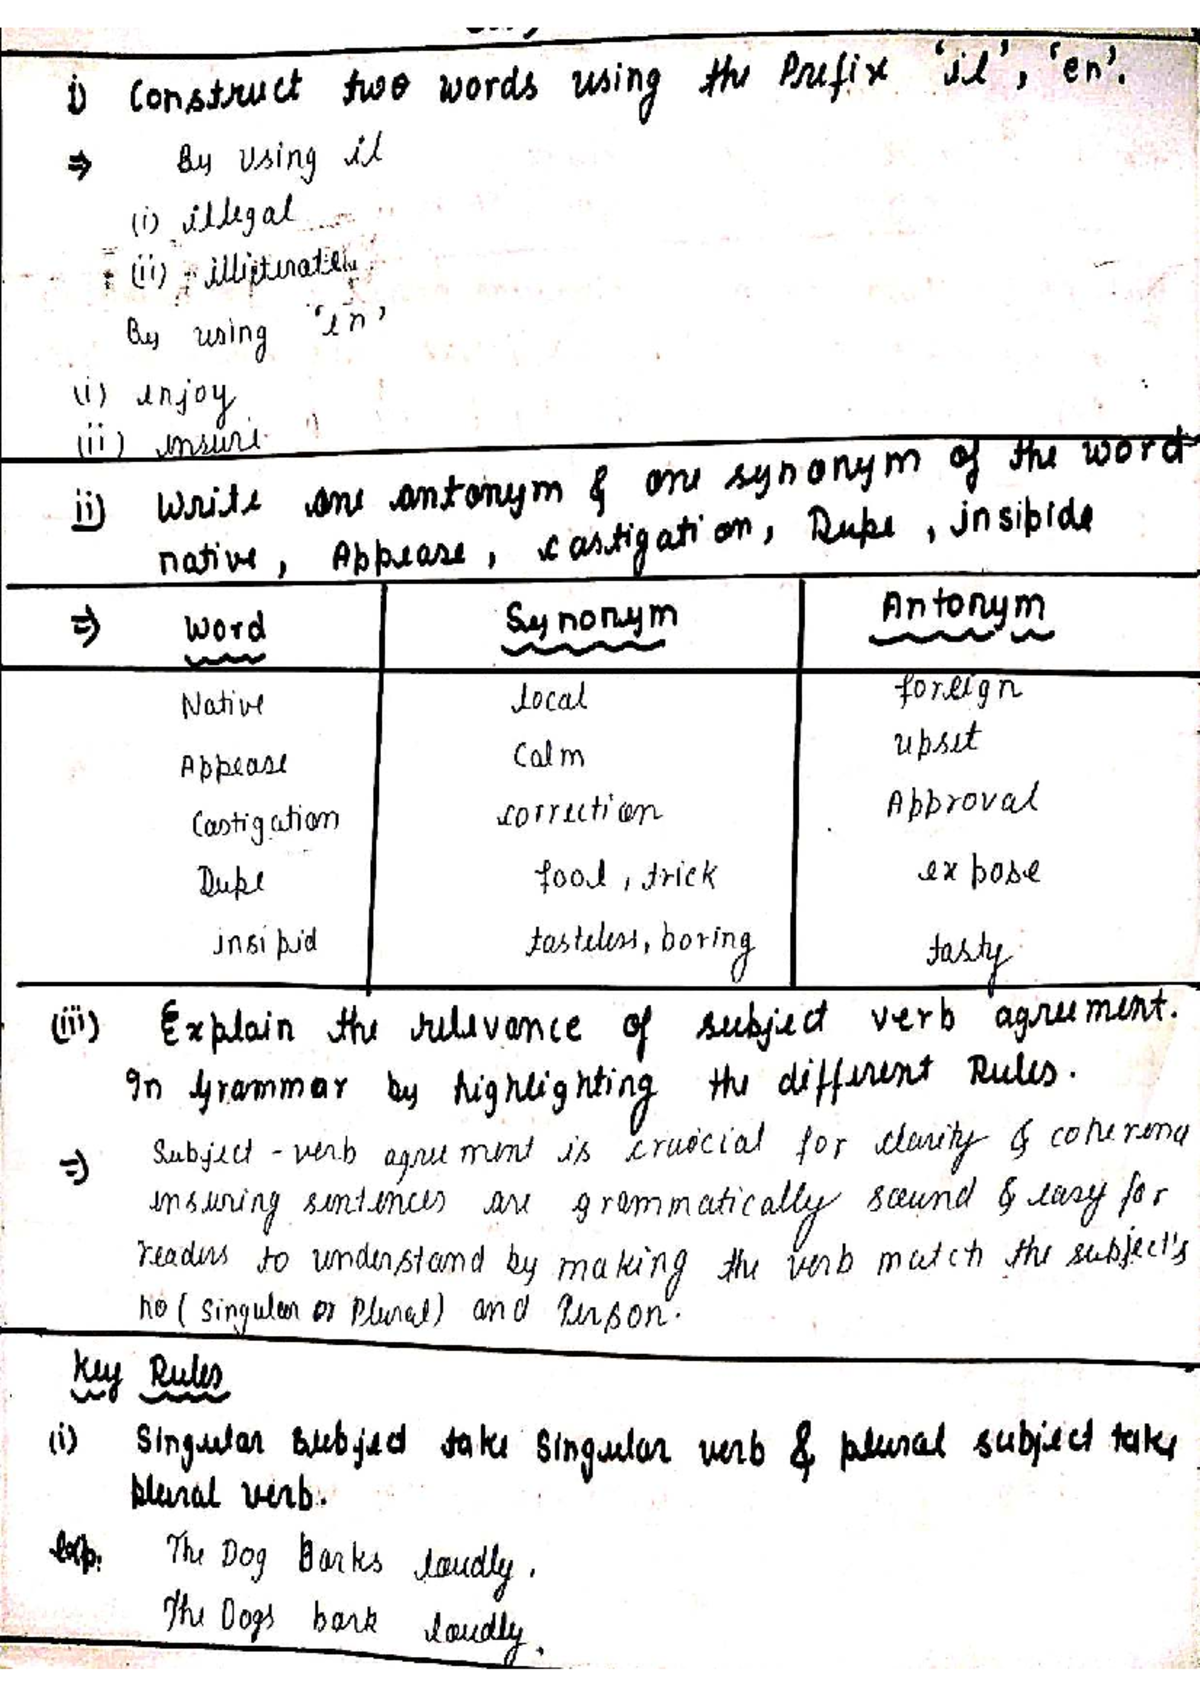 i) Construct two words using the Prefix 'il', 'en'.
⇒ By using il
(i) illegal
(ii) illiterately
By using 'en'
(i) enjoy
(ii) ensure
ii) Write one antonym & one synonym of the word
native, Appease, castigation, Dupe, insipide
⇒ Word Synonym Antonym
Native local foreign
Appease Calm upset
Castigation correction Approval
Dupe fool, trick expose
insipid tasteless, boring tasty
(iii) Explain the relevance of subject verb agreement.
In Grammar by highlighting the different Rules.
⇒ Subject-verb agreement is crucial for clarity & coherend
ensuring sentences are grammatically sound & easy for
readers to understand by making the verb match the subject's
no (Singular or Plural) and Person.
Key Rules
(i) Singular Subject take Singular verb & plural subject take
plural verb.
exp. The Dog Barks loudly.
The Dogs bark loudly.